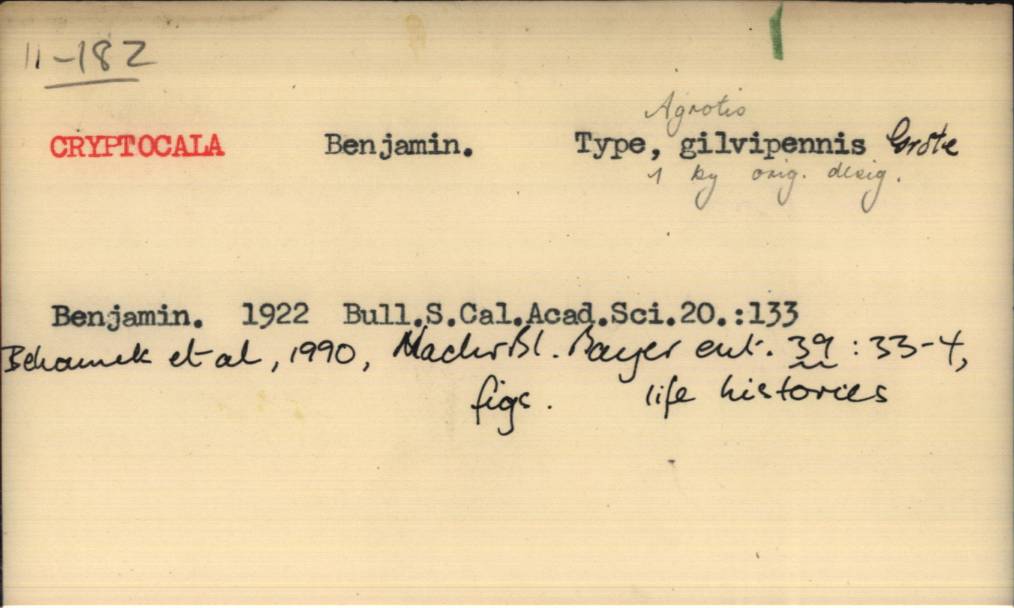 11-182
Agrotis
CRYPTOCALA Benjamin. Type, gilvipennis Grote
1 by orig. desig.
Benjamin. 1922 Bull.S.Cal.Acad.Sci.20.:133
et al, 1990, NachrBl. Bayer ent. 39 : 33-4,
figs. life histories